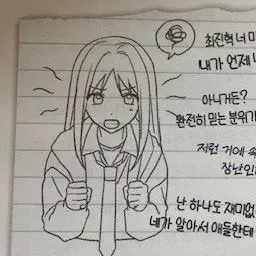 최진혁 너
내가 언제
아니거든?
완전히 믿는 분위기
저런 거에
장난인
난 하나도 재미없
네가 알아서 애들한테